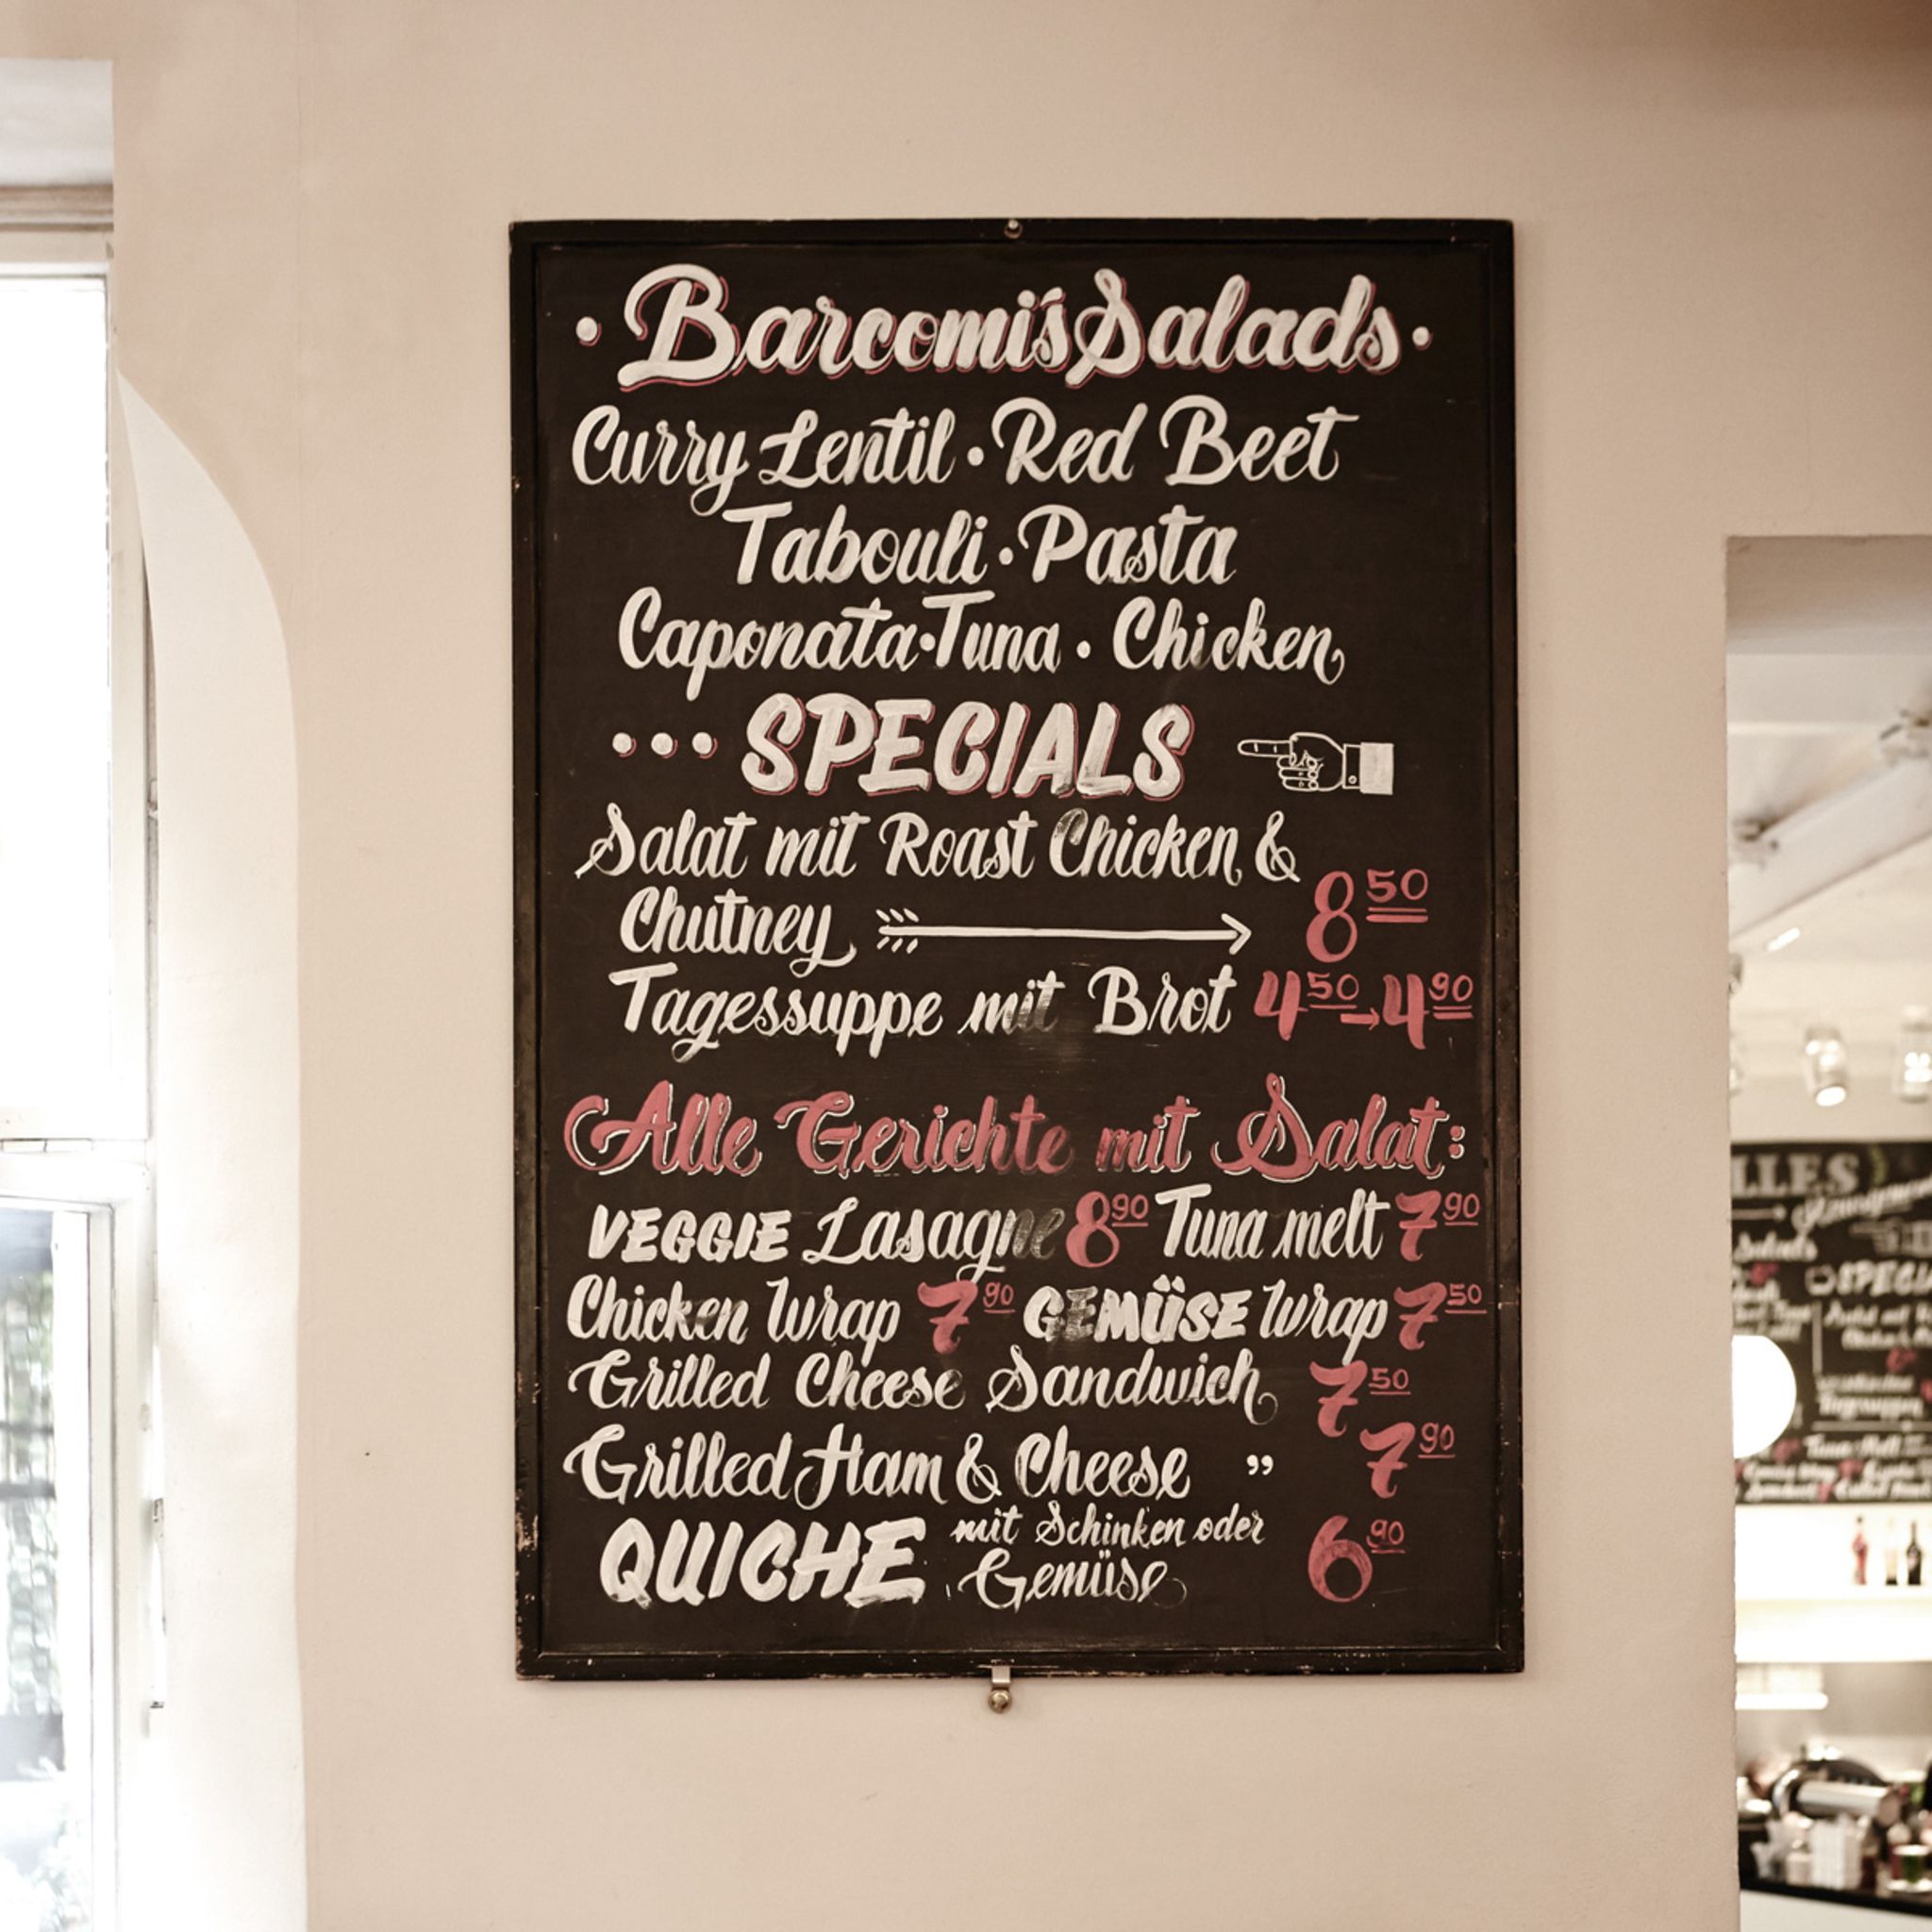 · Barcomi's Salads ·
Curry Lentil · Red Beet
Tabouli · Pasta
Caponata · Tuna · Chicken
... SPECIALS
Salat mit Roast Chicken &
Chutney 8 50
Tagessuppe mit Brot 4 50 → 4 90
Alle Gerichte mit Salat:
VEGGIE Lasagne 8 90 Tuna melt 7 90
Chicken Wrap 7 90 GEMÜSE Wrap 7 50
Grilled Cheese Sandwich 7 50
Grilled Ham & Cheese " 7 90
QUICHE mit Schinken oder
Gemüse 6 90